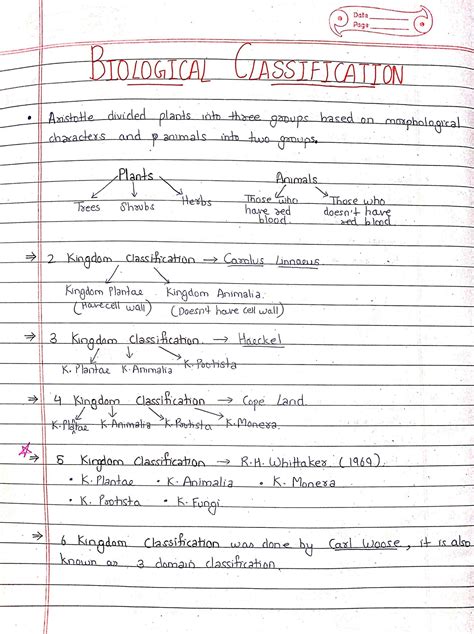 Date
Page
BIOLOGICAL CLASSIFICATION
• Aristotle divided plants into three groups based on morphological
characters and animals into two groups.
Plants Animals
Trees Shrubs Herbs Those who have red blood Those who doesn't have red blood
⇒ 2 Kingdom Classification → Carolus Linnaeus
Kingdom Plantae Kingdom Animalia.
(Have cell wall) (Doesn't have cell wall)
⇒ 3 Kingdom Classification. → Haeckel
K. Plantae K. Animalia K. Protista
⇒ 4 Kingdom Classification → Cope Land.
K. Plantae K. Animalia K. Protista K. Monera.
⇒ 5 Kingdom Classification → R.H. Whittaker (1969).
• K. Plantae • K. Animalia • K. Monera
• K. Protista • K. Fungi
⇒ 6 Kingdom Classification was done by Carl Woose, it is also
known as 3 domain classification.